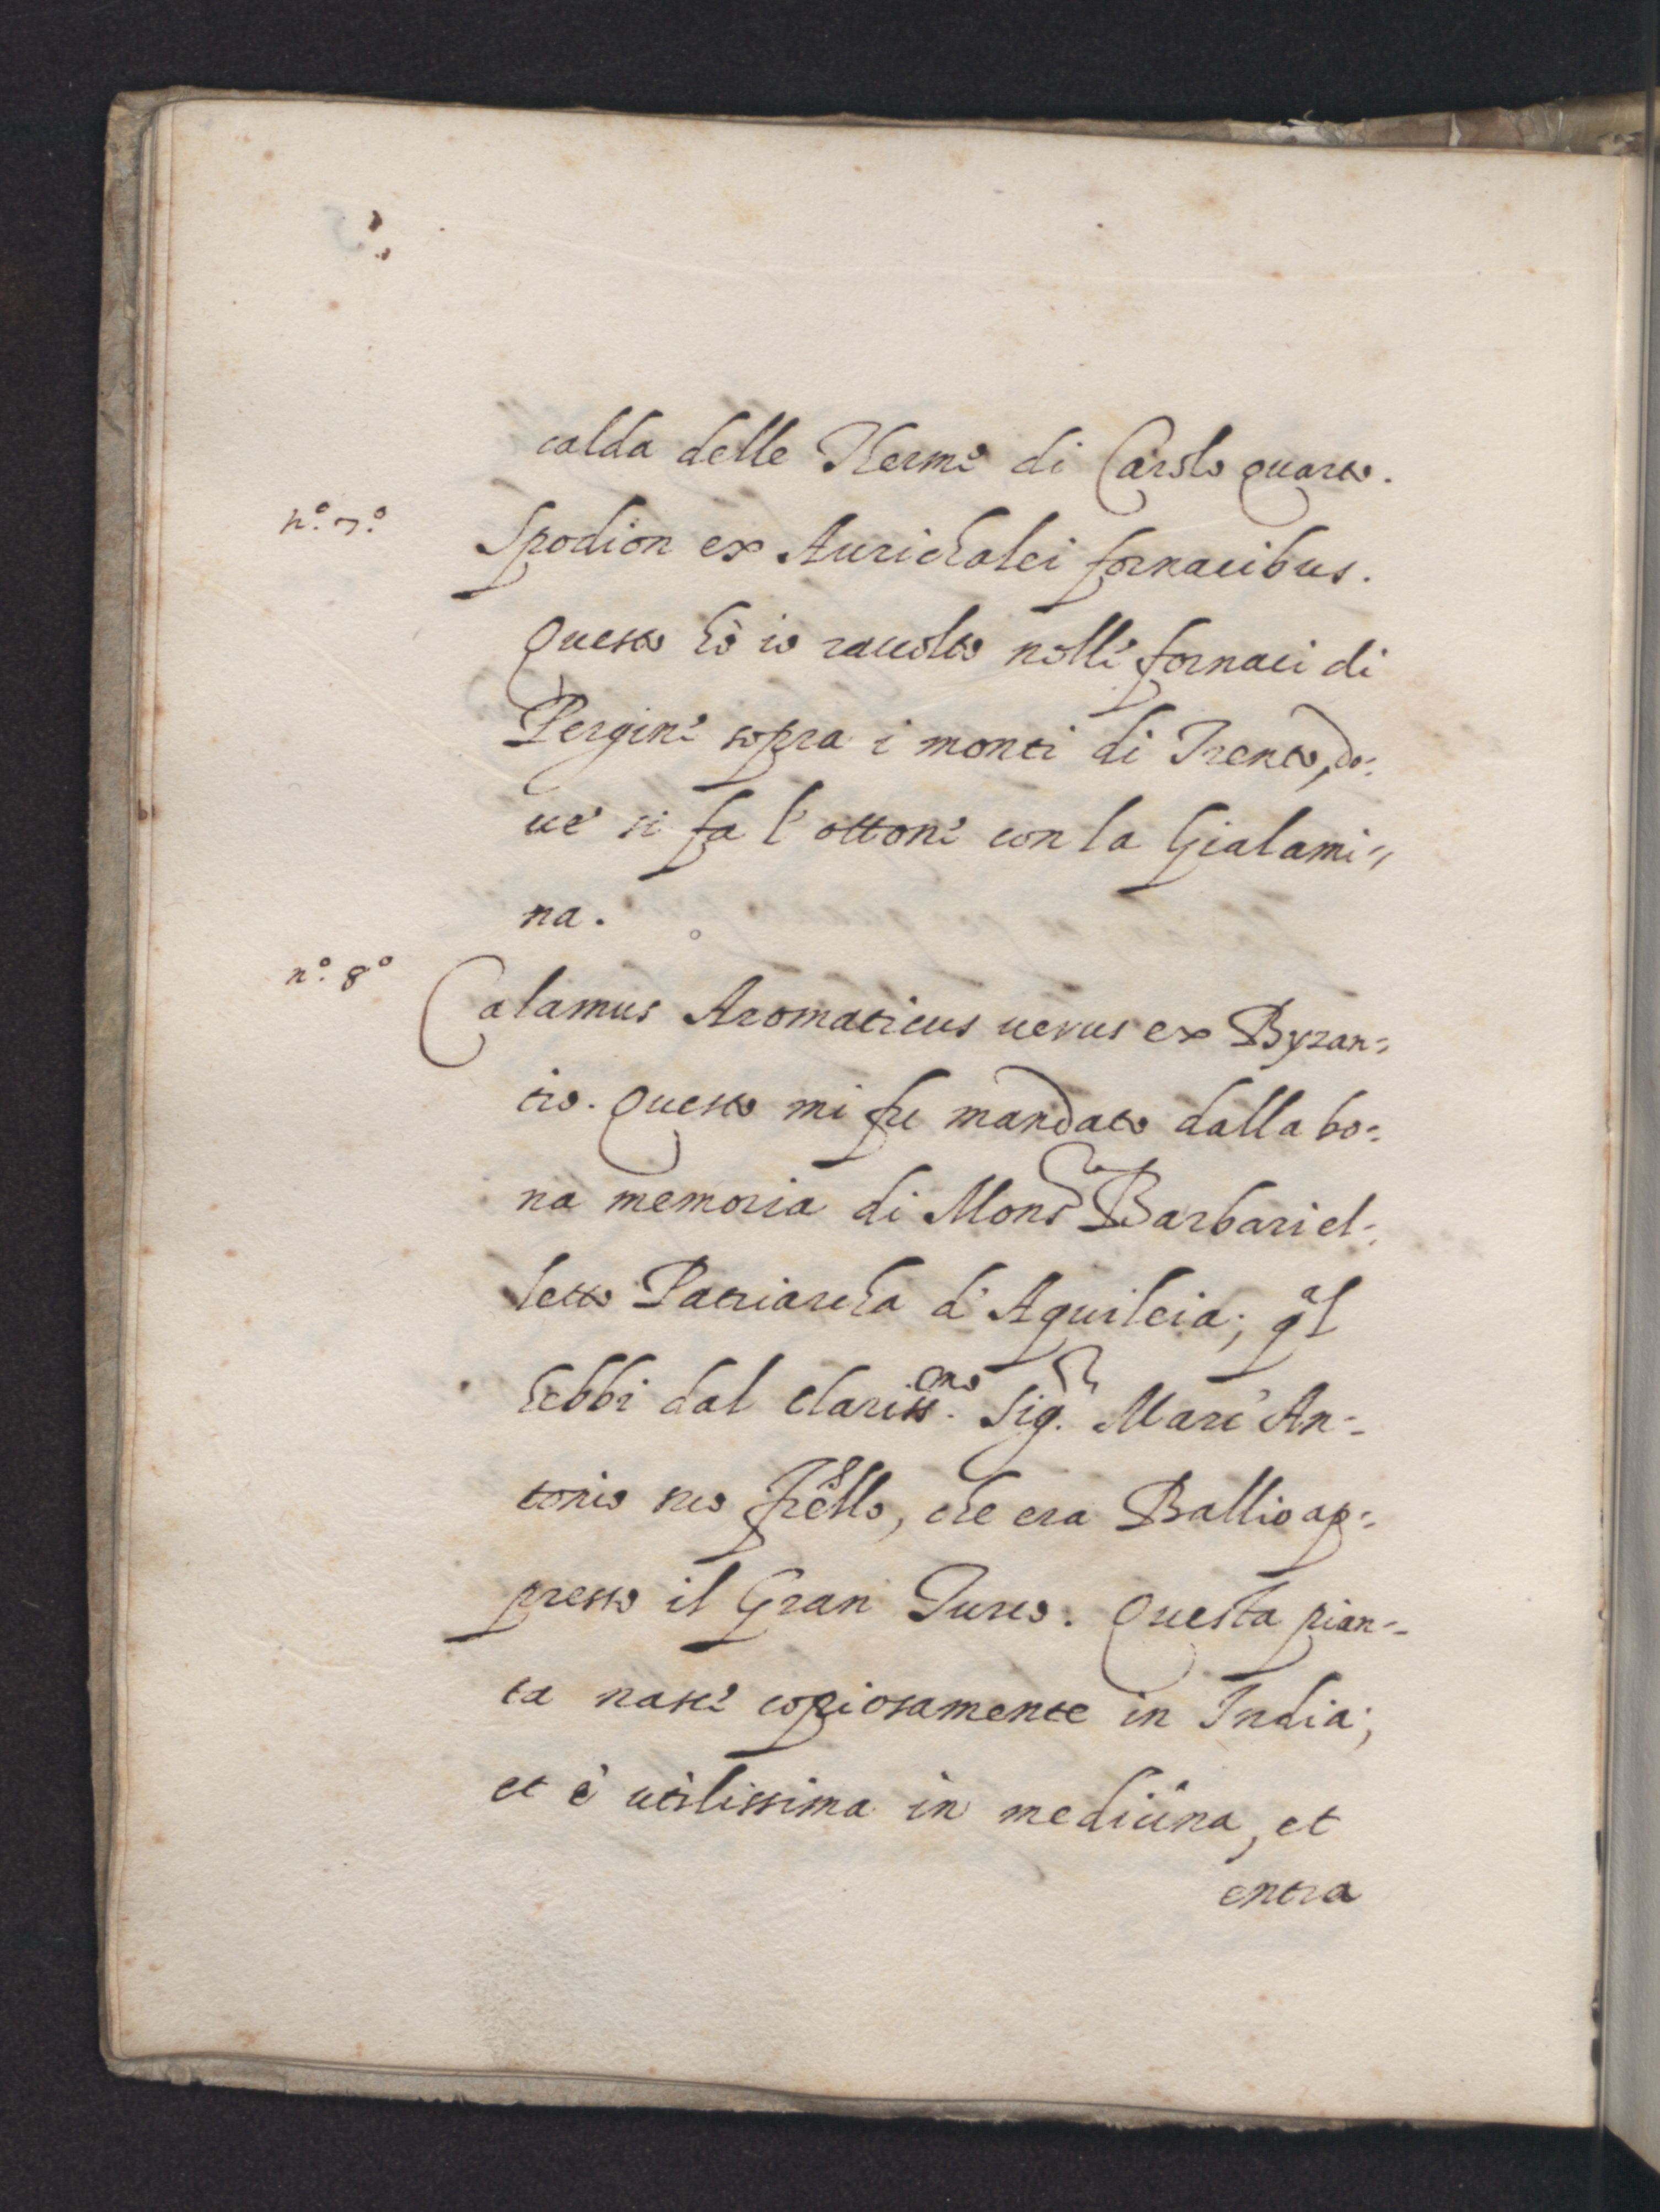 calda delle Therme di Carolo quarto.
n.° 7.° Spodion ex Aurichalci fornacibus.
Questo hò io raccolto nelle fornaci di
Pergine sopra i monti di Trento, do=
ue si fa l'ottone con la Gialami=
na.
n.° 8° Calamus Aromaticus uerus ex Byzan=
tio. Questo mi fu mandato dalla bo=
na memoria di Mons.r Barbari el=
letto Patriarcha d'Aquileia; qal
hebbi dal clariss.mo Sig.r Marc'An=
tonio suo frello, che era Ballio ap=
presso il Gran Turco. Questa pian=
ta nasce copiosamente in India;
et è utilissima in medicina, et
entra